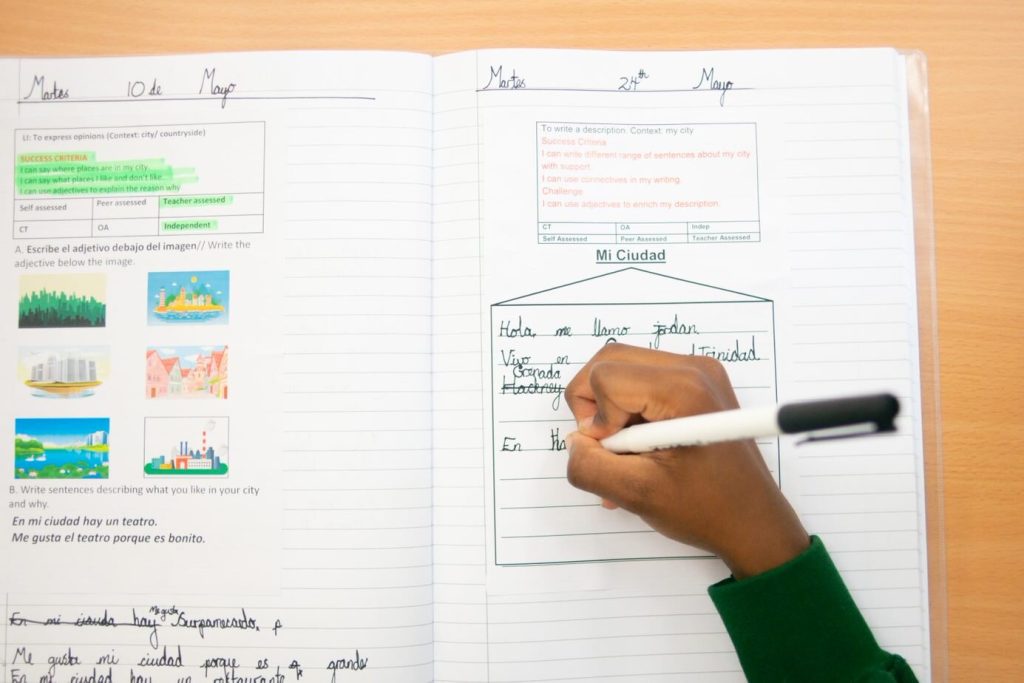 Martes 10 de Mayo
LI: To express opinions (Context: city/ countryside)
SUCCESS CRITERIA
I can say where places are in my city.
I can say what places I like and don't like.
I can use adjectives to explain the reason why
Self assessed Peer assessed Teacher assessed
CT OA Independent
A. Escribe el adjetivo debajo del imagen// Write the
adjective below the image.
B. Write sentences describing what you like in your city
and why.
En mi ciudad hay un teatro.
Me gusta el teatro porque es bonito.
Me gusta
En mi ciauda hay
Me gusta mi ciudad porque es grande
En mi ciudad hay un
Martes 24th Mayo
To write a description. Context: my city
Success Criteria
I can write different range of sentences about my city
with support.
I can use connectives in my writing.
Challenge
I can use adjectives to enrich my description.
CT OA Indep
Self Assessed Peer Assessed Teacher Assessed
Mi Ciudad
Hola, me llamo jordan
Vivo en Trinidad
Grenada
Hackney
En Ha